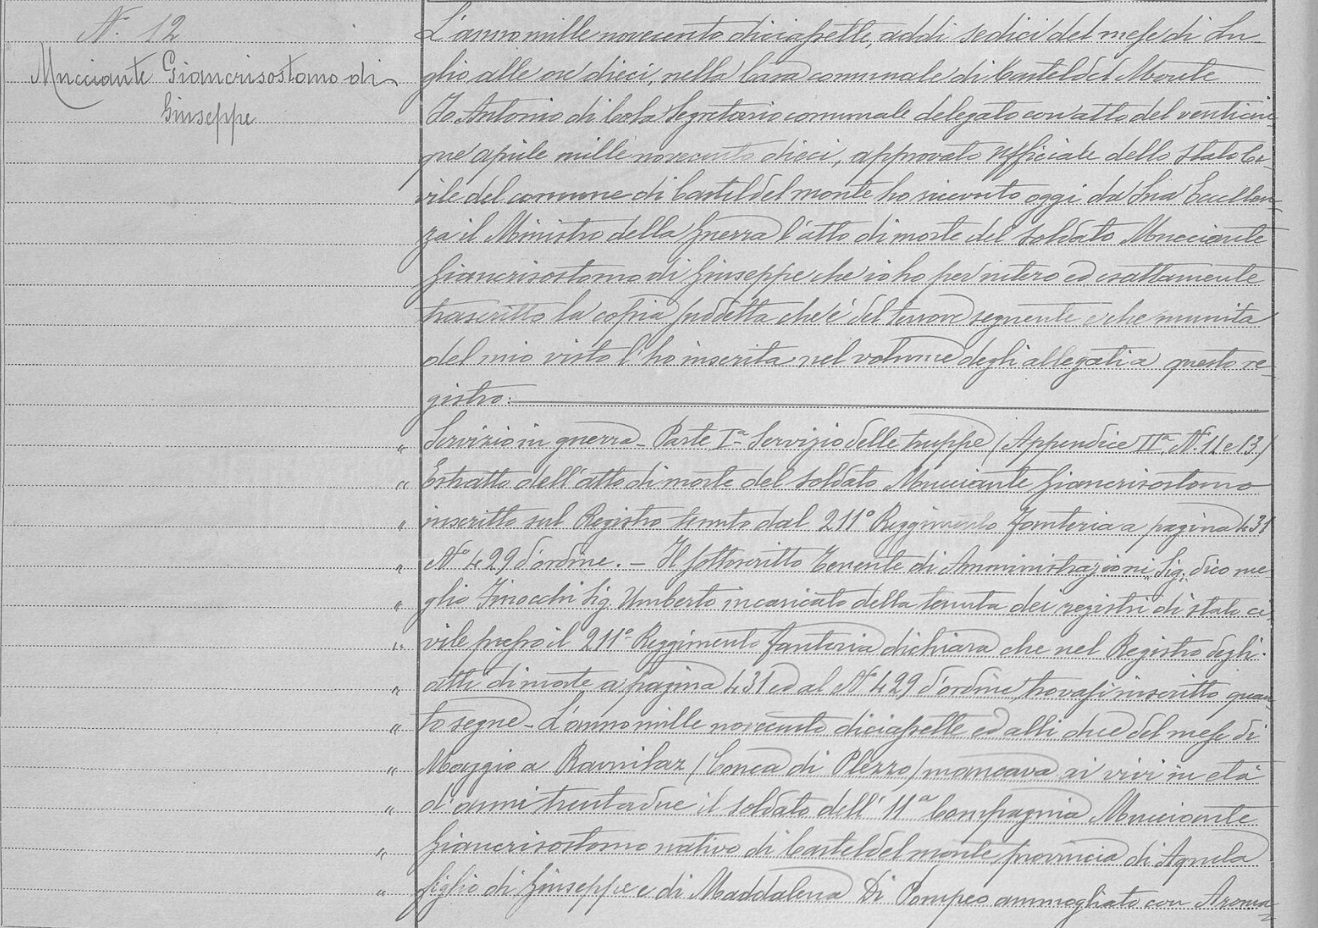 N. 12
Mucciante Giancrisostomo di
Giuseppe
L'anno mille novecento diciassette, addi sedici del mese di Lu-
glio alle ore dieci, nella Casa comunale di Castel del Monte
Io Antonio di Cola Segretario comunale delegato con atto del venticin-
que aprile mille novecento dieci, approvato Ufficiale dello Stato Ci-
vile del comune di Castel del monte ho ricevuto oggi da Sua Eccellen-
za il Ministro della Guerra l'atto di morte del soldato Mucciante
Giancrisostomo di Giuseppe che io ho per intero ed esattamente
trascritto la copia suddetta che è del tenore seguente e che munita
del mio visto l'ho inserita nel volume degli allegati a questo re-
gistro:
Servizio in guerra - Parte Iª - Servizio delle truppe (Appendice IIª N. 11 e 13)
" Estratto dell'atto di morte del soldato Mucciante Giancrisostomo
" inscritto sul Registro tenuto dal 211° Reggimento Fanteria a pagina 431
" N° 429 d'ordine. - Il sottoscritto Tenente di Amministrazione Sig. dico me-
" glio Finocchi Sig. Umberto incaricato della tenuta dei registri di stato ci-
" vile presso il 211° Reggimento fanteria dichiara che nel Registro degli
" atti di morte a pagina 431 ed al N° 429 d'ordine trovasi inscritto quan-
" to segue - L'anno mille novecento diciassette ed alli due del mese di
" Maggio a Ravnilaz (Conca di Plezzo) mancava ai vivi in età
" d'anni trentadue il soldato dell'11ª Compagnia Mucciante
" Giancrisostomo nativo di Castel del monte provincia di Aquila
" figlio di Giuseppe e di Maddalena Di Pompeo ammogliato con